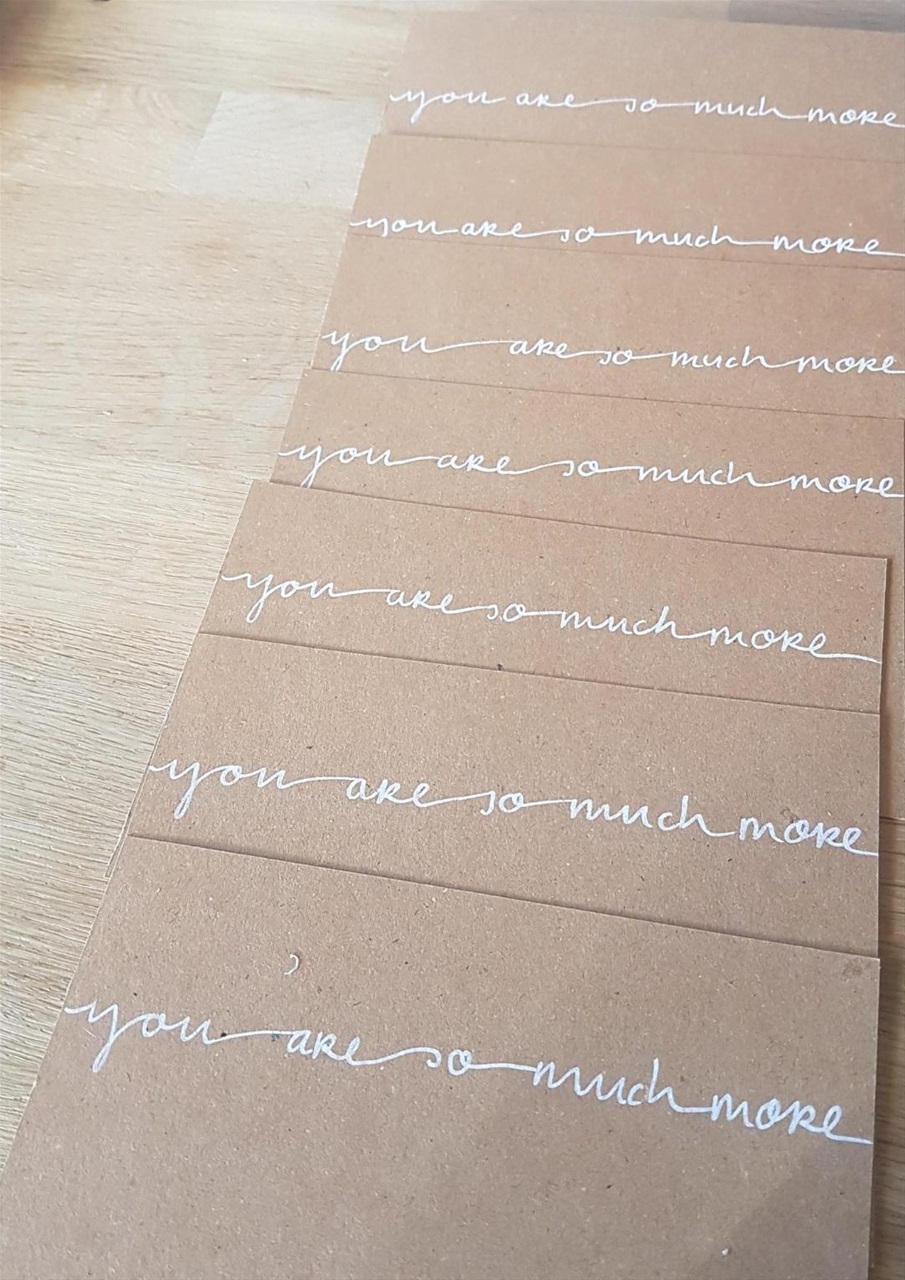 you are so much more
you are so much more
you are so much more
you are so much more
you are so much more
you are so much more
you are so much more